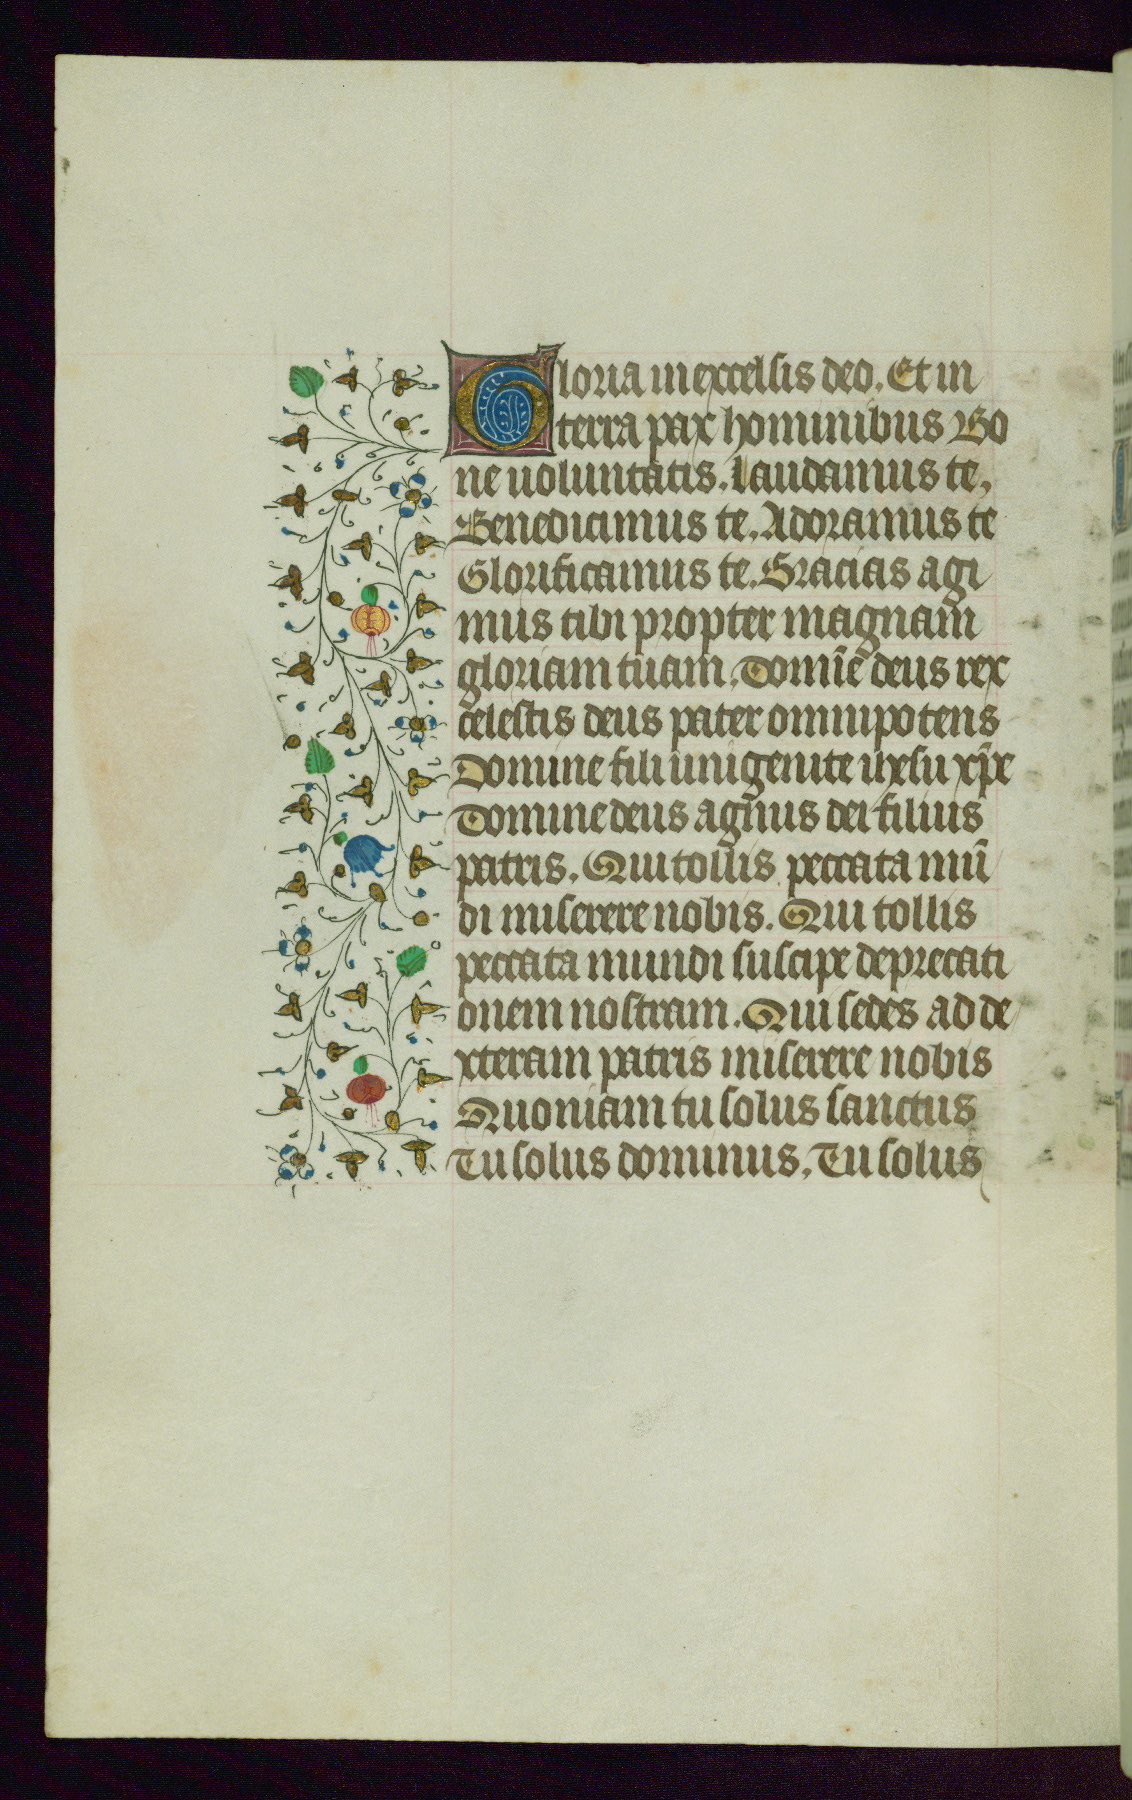 Gloria in excelsis deo. Et in
terra pax hominibus Bo
ne uoluntatis. Laudamus te.
Benedicimus te. Adoramus te
Glorificamus te. Gracias agi
mus tibi propter magnam
gloriam tuam. Domīe deus rex
celestis deus pater omnipotens
Domine fili unigenite ihesu xp̄e
Domine deus agnus dei filius
patris. Qui tollis peccata mū
di miserere nobis. Qui tollis
peccata mundi suscipe deprecati
onem nostram. Qui sedes ad de
xteram patris miserere nobis
Quoniam tu solus sanctus
Tu solus dominus. Tu solus